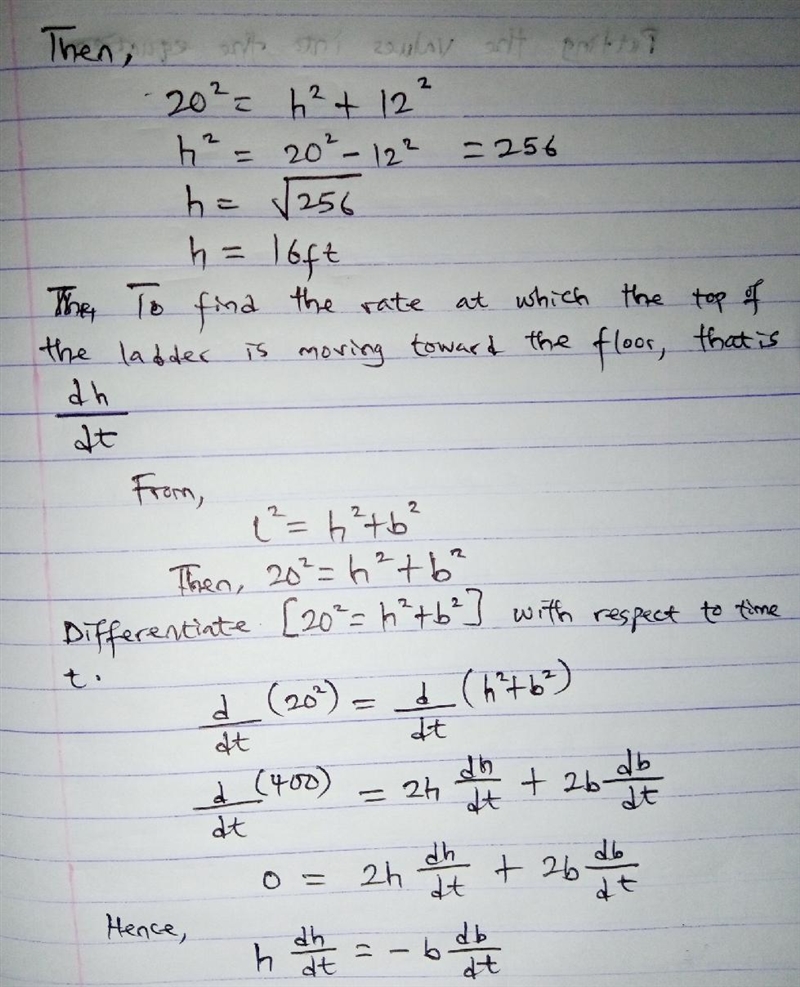 Then,
20² = h² + 12²
h² = 20² - 12² = 256
h = √256
h = 16ft
The, To find the rate at which the top of
the ladder is moving toward the floor, that is
dh/dt
From,
l² = h² + b²
Then, 20² = h² + b²
Differentiate [20² = h² + b²] with respect to time
t.
d/dt (20²) = d/dt (h² + b²)
d/dt (400) = 2h dh/dt + 2b db/dt
0 = 2h dh/dt + 2b db/dt
Hence,
h dh/dt = - b db/dt